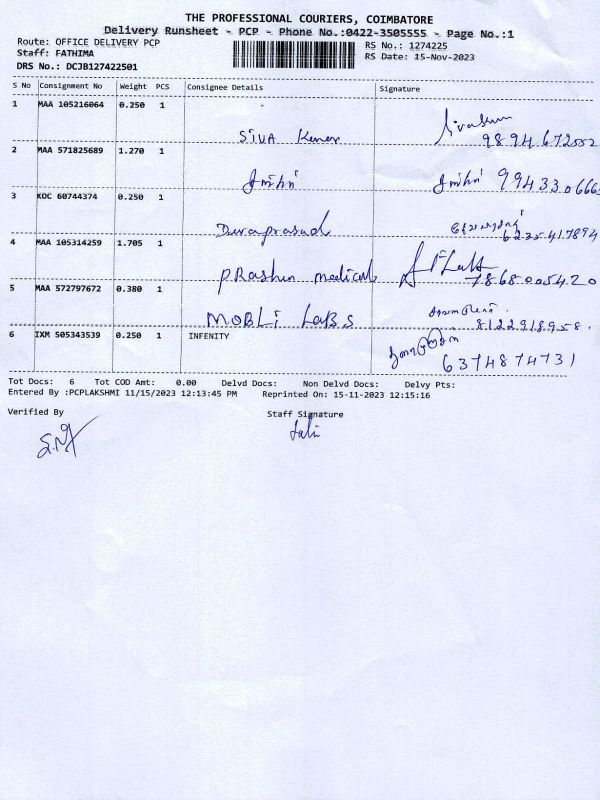 THE PROFESSIONAL COURIERS, COIMBATORE
Delivery Runsheet - PCP - Phone No.:0422-3505555 - Page No.:1
Route: OFFICE DELIVERY PCP
RS No.: 1274225
Staff: FATHIMA
RS Date: 15-Nov-2023
DRS No.: DCJB127422501
S No Consignment No Weight PCS Consignee Details Signature
1 MAA 105216064 0.250 1
SIVA Kumar 9894672552
2 MAA 571825689 1.270 1
994330666
3 KOC 60744374 0.250 1
Durgaprasad
4 MAA 105314259 1.705 1
PRashin medical 7868005420
5 MAA 572797672 0.380 1
MOBLI LABS 8122918958.
6 IXM 505343539 0.250 1 INFENITY
6374874731
Tot Docs: 6 Tot COD Amt: 0.00 Delvd Docs: Non Delvd Docs: Delvy Pts:
Entered By :PCPLAKSHMI 11/15/2023 12:13:45 PM Reprinted On: 15-11-2023 12:15:16
Verified By Staff Signature